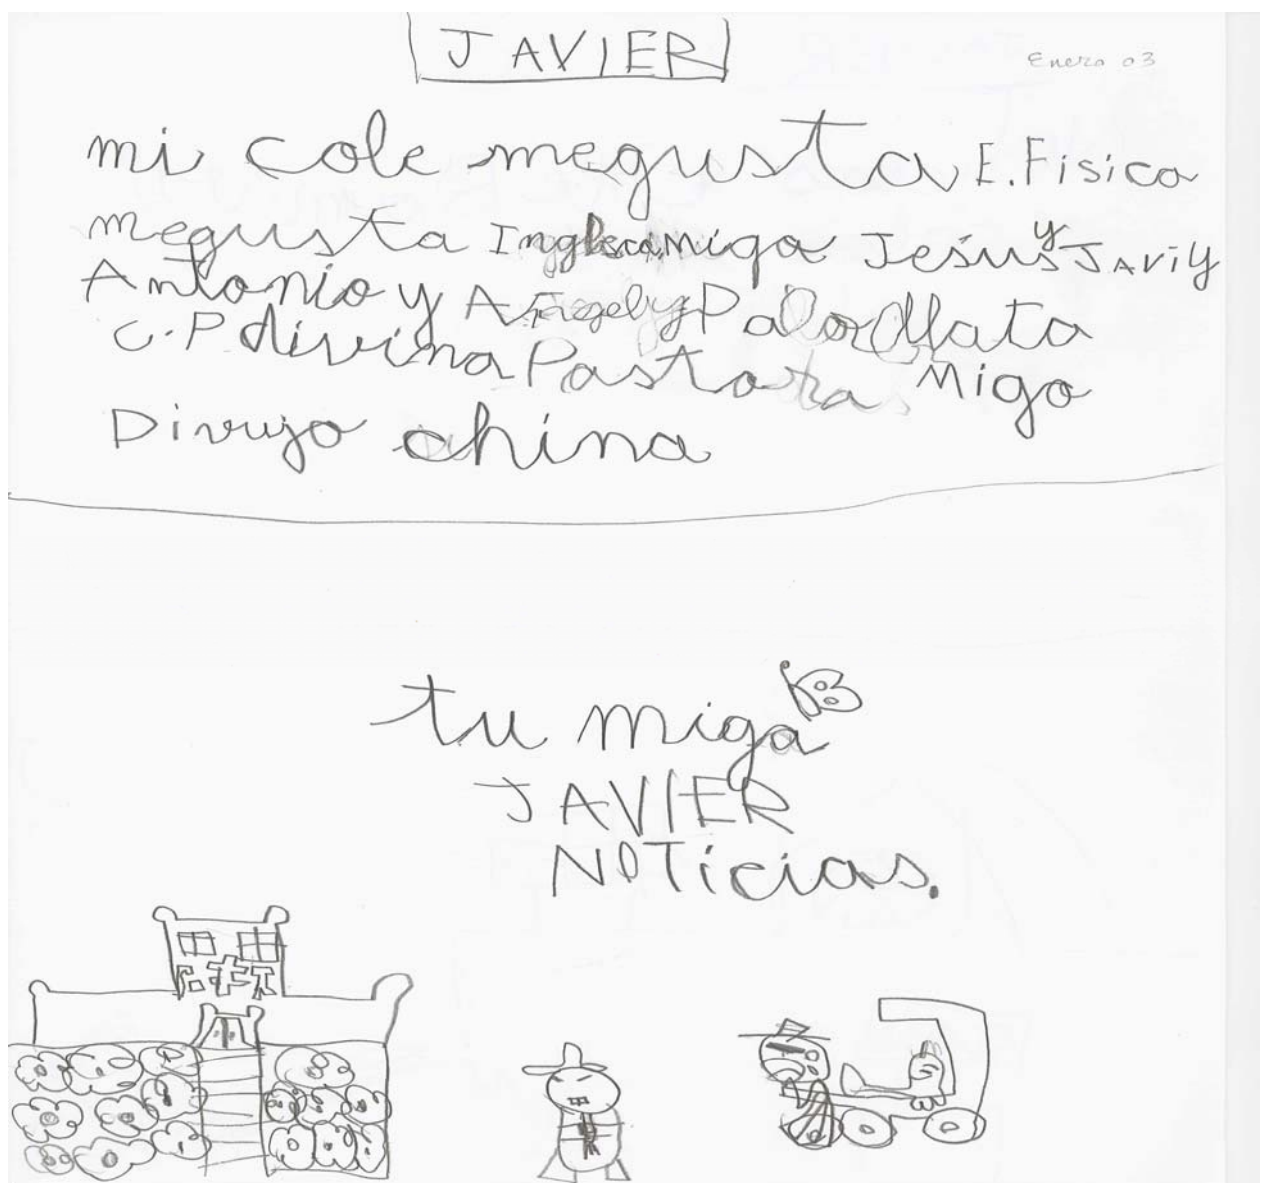 JAVIER
Enero 03
mi cole megusta E.Fisica
megusta Ingles miga Jesús y JAVi y
Antonio y Angel y P
C.P divina Pastora Migo
Divujo china
tu miga
JAVIER
NOTicias.